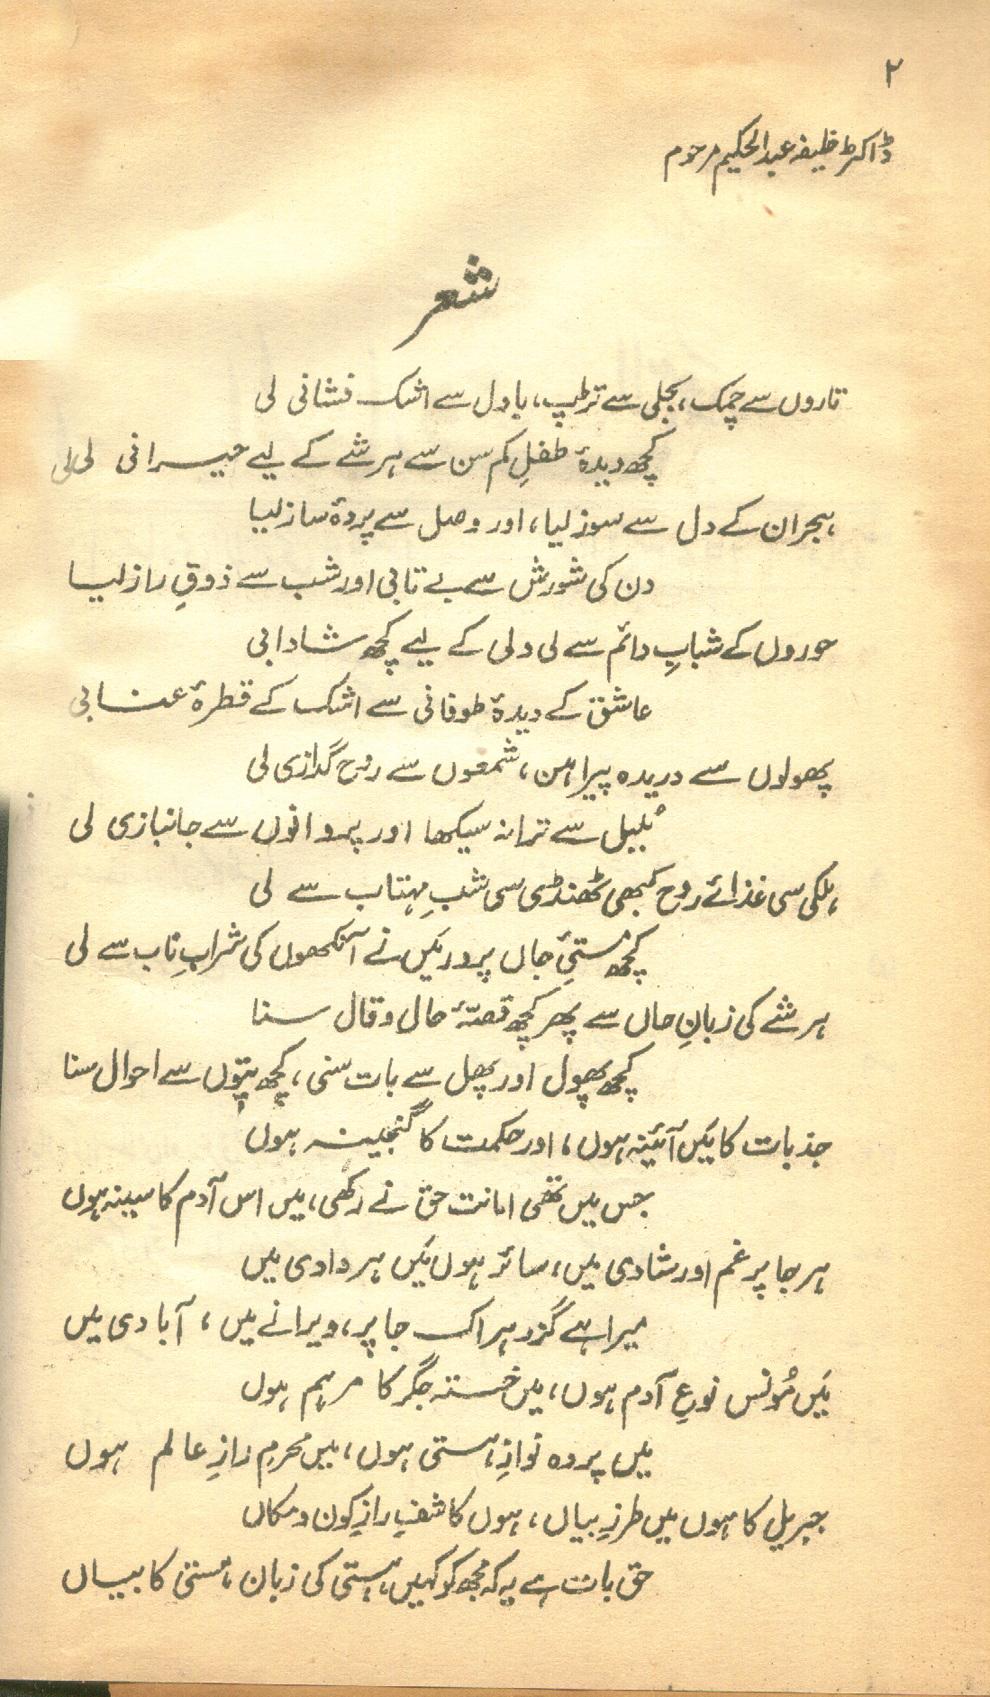 ۲
ڈاکٹر خلیفہ عبدالحکیم مرحوم
شعر
تاروں سے چمک، بجلی سے تڑپ، بادل سے اشک فشانی لی
کچھ دیدۂ طفلِ کم سن سے ہر شے کے لیے حیرانی لی لی
ہجران کے دل سے سوز لیا، اور وصل سے پردۂ ساز لیا
دن کی شورش سے بے تابی اور شب سے ذوقِ راز لیا
حوروں کے شبابِ دائم سے لی دلی کے لیے کچھ شادابی
عاشق کے دیدۂ طوفانی سے اشک کے قطرۂ عنابی
پھولوں سے دریدہ پیراہن، شمعوں سے روح گدازی لی
بُلبل سے ترانہ سیکھا اور پروانوں سے جانبازی لی
ہلکی سی غذائے روح کبھی ٹھنڈی سی شبِ مہتاب سے لی
کچھ مستیٔ جاں پرور مَیں نے آنکھوں کی شرابِ ناب سے لی
ہر شے کی زبانِ حال سے پھر کچھ قصّۂ حال و قال سنا
کچھ پھول اور پھل سے بات سنی، کچھ پتّوں سے احوال سنا
جذبات کا مَیں آئینہ ہوں، اور حکمت کا گنجینہ ہوں
جس میں تھی امانت حق نے رکھی، میں اس آدم کا سینہ ہوں
ہر جا پر غم اور شادی میں، سائر ہوں مَیں ہر وادی میں
میرا ہے گزر ہر اک جا پر، ویرانے میں، آبادی میں
مَیں مُونس نوعِ آدم ہوں، میں خستہ جگر کا مرہم ہوں
میں پردہ نوازِ ہستی ہوں، میں محرمِ رازِ عالم ہوں
جبریل کا ہوں میں طرزِ بیاں، ہوں کاشفِ رازِ کون و مکاں
حق بات ہے یہ کہ مجھ کو کہیں ہستی کی زبان، مستی کا بیاں